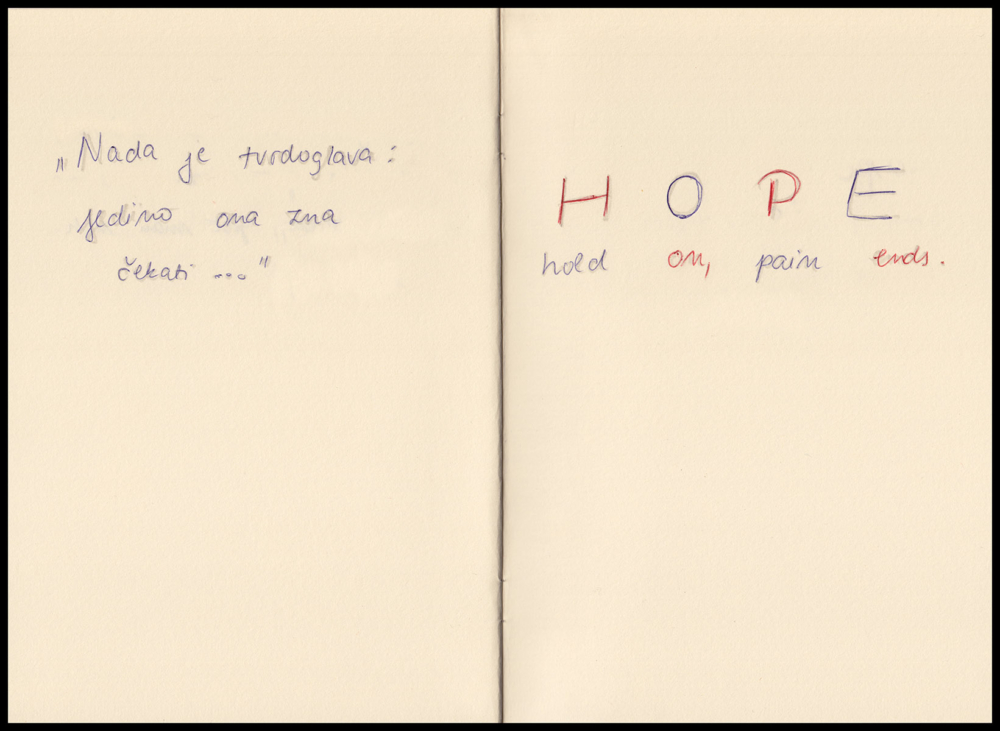 „Nada je tvrdoglava:
jedino ona zna
čekati ...“
H O P E
hold on, pain ends.